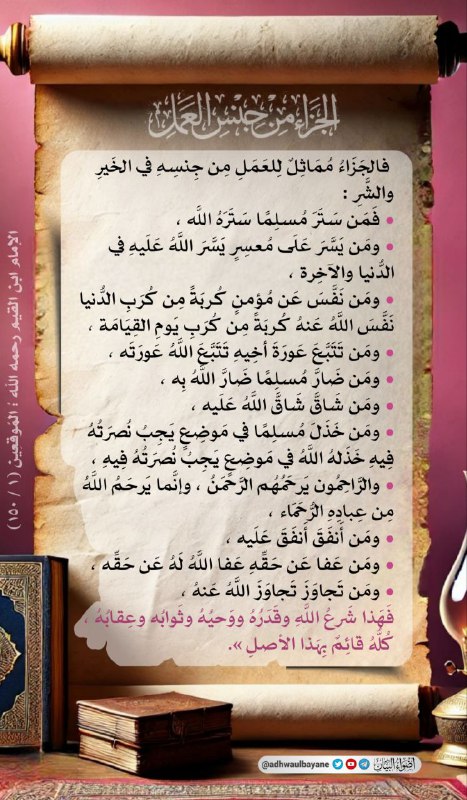 الجَزَاءُ مِنْ جِنْسِ العَمَلِ
فالجَزَاءُ مُمَاثِلٌ لِلعَمَلِ مِن جِنسِهِ في الخَيرِ
والشَّرِ :
• فَمَن سَتَرَ مُسلِمًا سَتَرَهُ اللَّه ،
• ومَن يَسَّرَ عَلَى مُعسِرٍ يَسَّرَ اللَّهُ عَلَيهِ فِي
الدُّنيا والآخِرة ،
• ومَن نَفَّسَ عَن مُؤمنٍ كُربَةً مِن كُرَبِ الدُّنيا
نَفَّسَ اللَّهُ عَنهُ كُربَةً مِن كُرَبِ يَومِ القِيَامَة ،
• ومَن تَتَبَّعَ عَورَةَ أخِيهِ تَتَبَّعَ اللَّهُ عَورَتَه ،
• ومَن ضَارَّ مُسلِمًا ضَارَّ اللَّهُ بِه ،
• ومَن شَاقَّ شَاقَّ اللَّهُ عَلَيه ،
• ومَن خَذَلَ مُسلِمًا في مَوضِعٍ يَجِبُ نُصرَتُهُ
فيهِ خَذَلَهُ اللَّهُ في مَوضِعٍ يَجِبُ نُصرَتُهُ فيهِ ،
• والرَّاحِمُون يَرحَمُهُم الرَّحمَنُ ، وإنَّما يَرحَمُ اللَّهُ
مِن عِبادِهِ الرُّحَمَاء ،
• ومَن أَنفَقَ أَنفَقَ عَلَيه ،
• ومَن عَفا عَن حَقِّهِ عَفا اللَّهُ لَهُ عَن حَقِّه ،
• ومَن تَجاوَزَ تَجاوَزَ اللَّهُ عَنهُ ،
فَهَذا شَرعُ اللَّهِ وقَدَرُهُ ووَحيُهُ وثَوابُه وعِقابُهُ ،
كُلُّهُ قائِمٌ بِهَذا الأصلِ ».
الإمام ابن القيم رحمه الله : المُوقعين ( ١ / ١٥٠ )
@adhwaulbayane
أضواء البيان